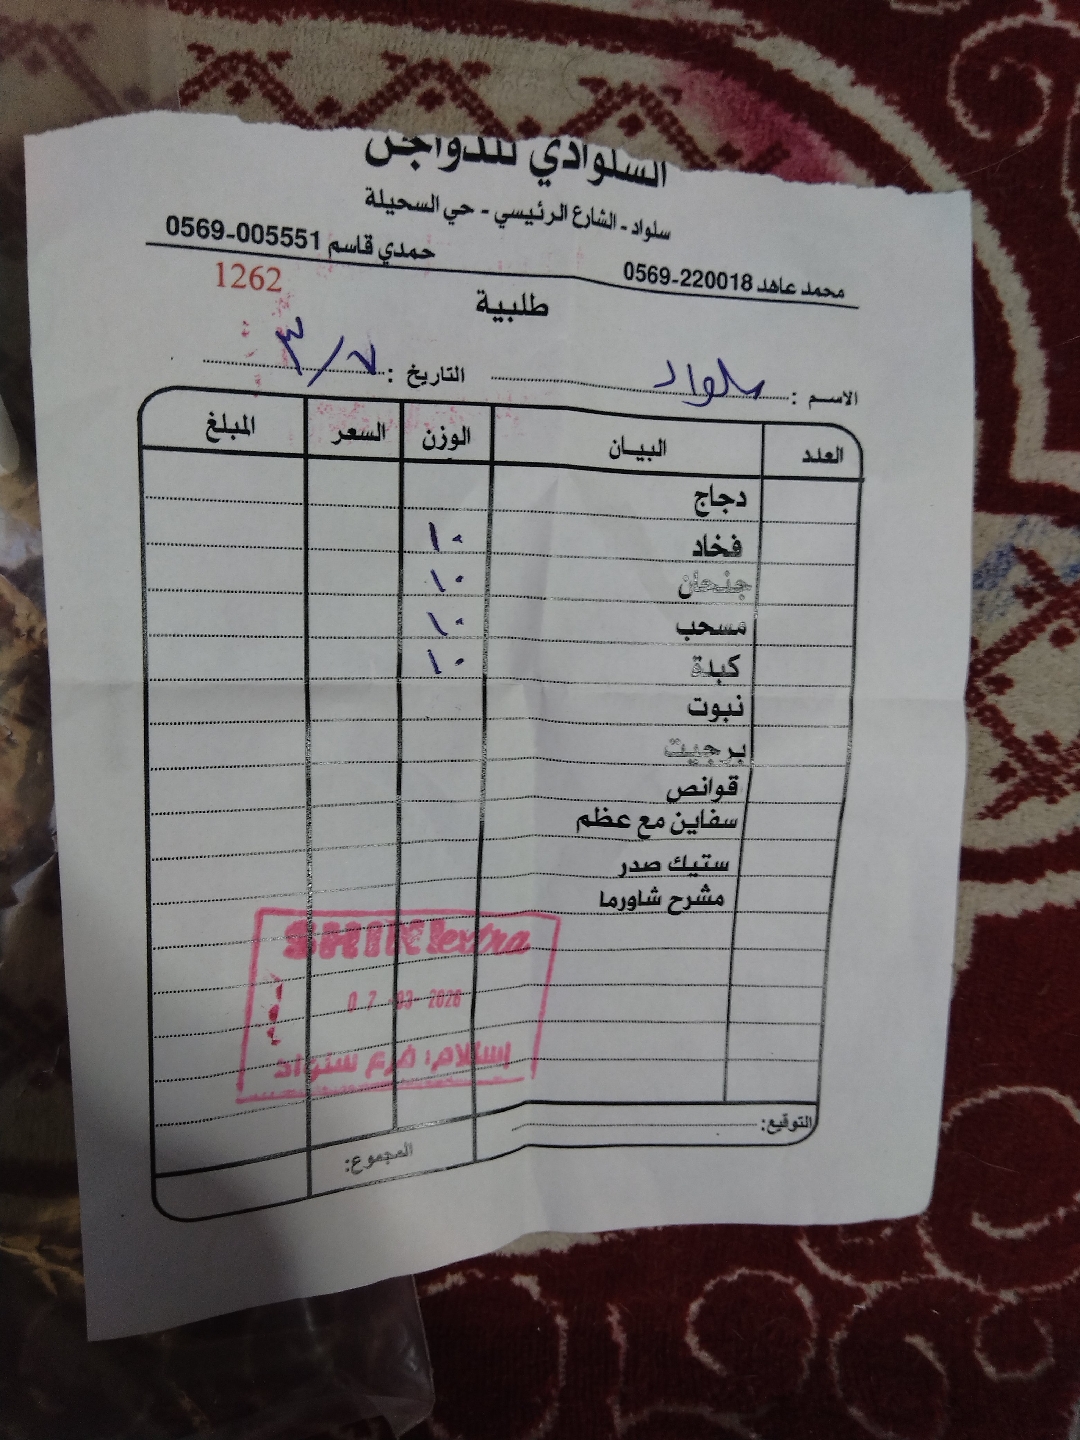 السلوادي للدواجن
سلواد - الشارع الرئيسي - حي السحيلة
محمد عاهد 0569-220018 حمدي قاسم 0569-005551
1262
طلبية
الاسم : سلواد التاريخ : ٧/٣
العدد البيان الوزن السعر المبلغ
دجاج
فخاد ١٠
جنحان ١٠
مسحب ١٠
كبدة ١٠
نبوت
برجيت
قوانص
سفاين مع عظم
ستيك صدر
مشرح شاورما
extra
07 -03- 2026
إستلام: فرع سلواد
التوقيع:
المجموع: